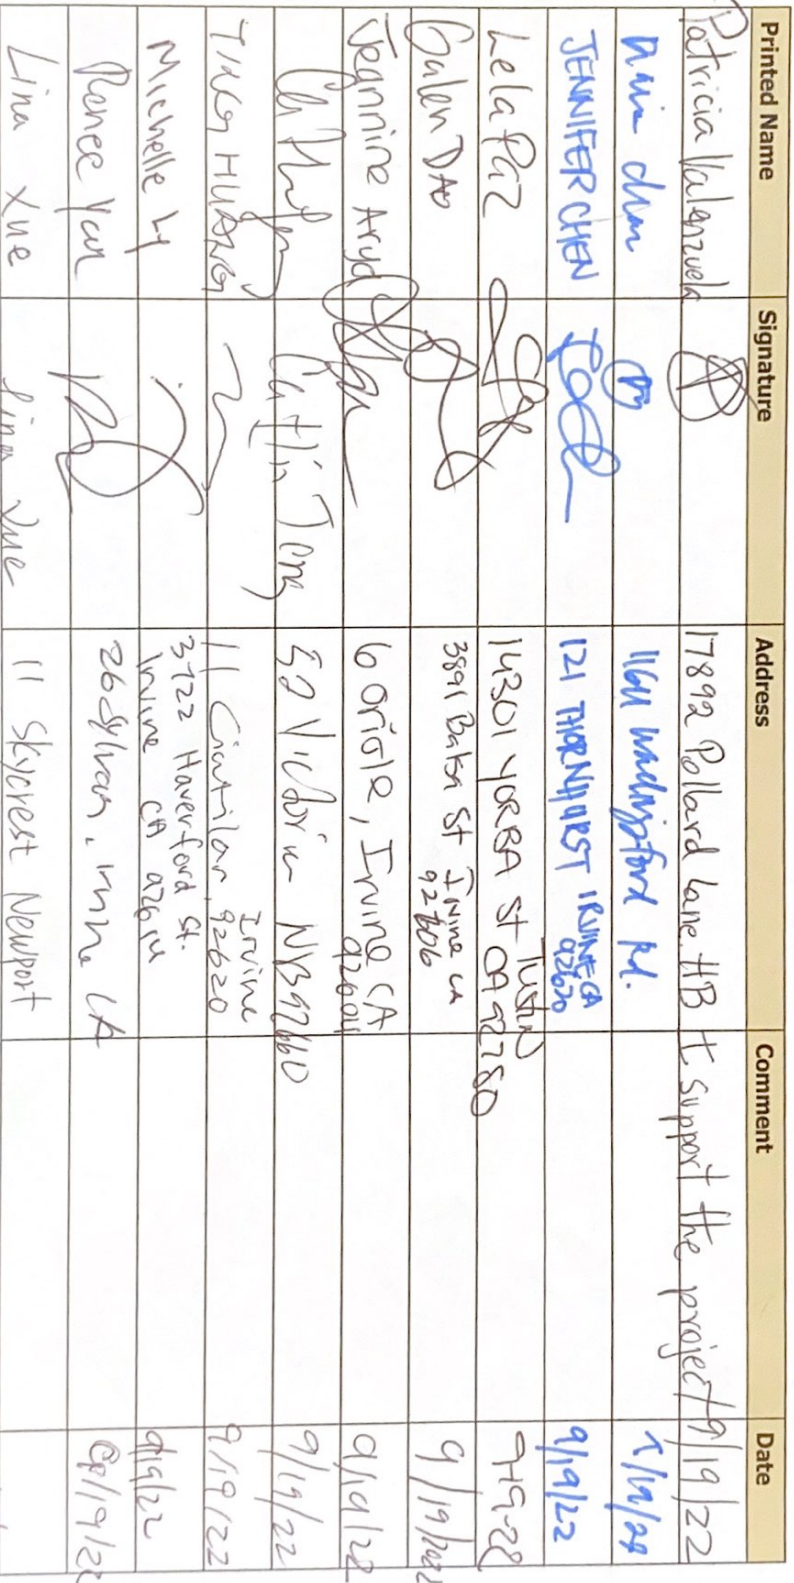 Printed Name Signature Address Comment Date
Patricia Valenzuela 17892 Pollard Lane. HB I support the project 9/19/22
1164 Rd.
JENNIFER CHEN 121 THORNHURST IRVINE CA 92620 9/19/22
Lela Paz 14301 YORBA ST Tustin CA 92780 9-19-22
Galen DAO 3891 St Irvine CA 92606 9/19/2022
Jeannine 6 Oriole, Irvine CA 9/19/22
Caitlin 52 Victoria NB 92660 9/19/22
TING HUANG 11 Irvine 92620 9/19/22
Michelle Ly 3722 Haverford St. 9/19/22
Irvine CA
Renee Yan 26 Sylvan, Irvine CA
Lina Xue Lina Xue 11 Skycrest Newport